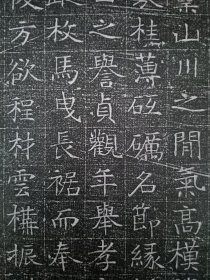 山川之間氣高模
桂薄砥礪名節緣
之譽貞觀年舉孝
枚馬曳長裾而奉
方欲程材雲構振